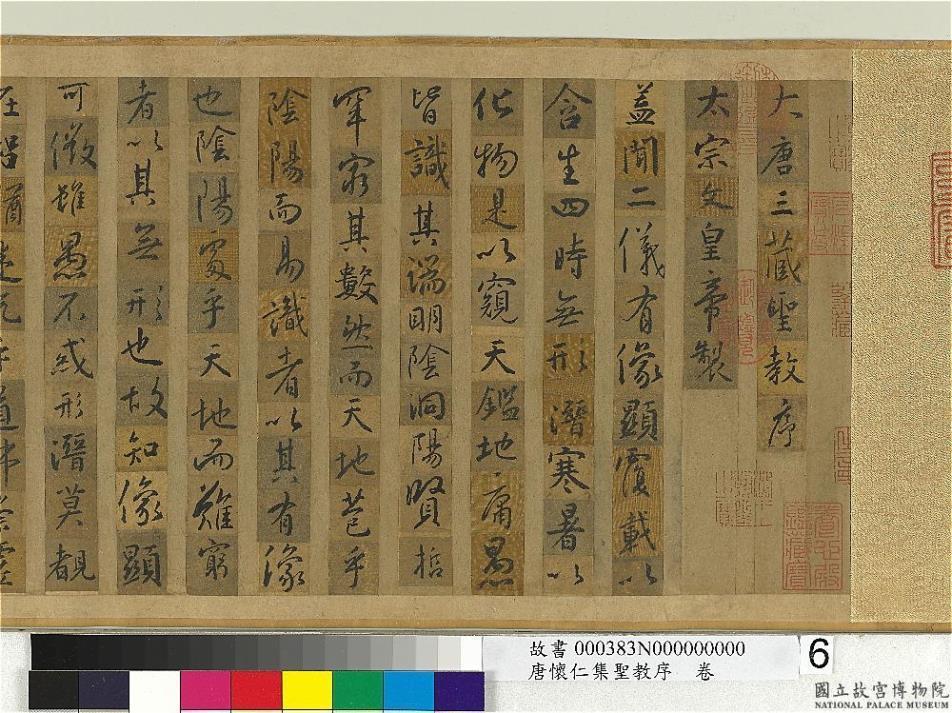 大唐三藏聖教序
太宗文皇帝製
蓋聞二儀有像顯覆載以
含生四時無形潛寒暑以
化物是以窺天鑑地庸愚
皆識其端明陰洞陽賢哲
罕窮其數然而天地苞乎
陰陽而易識者以其有像
也陰陽處乎天地而難窮
者以其無形也故知像顯
可徵雖愚不惑形潛莫覩
在智猶迷況乎道崇虛
故書 000383N000000000
唐懷仁集聖教序 卷
6
國立故宮博物院
NATIONAL PALACE MUSEUM